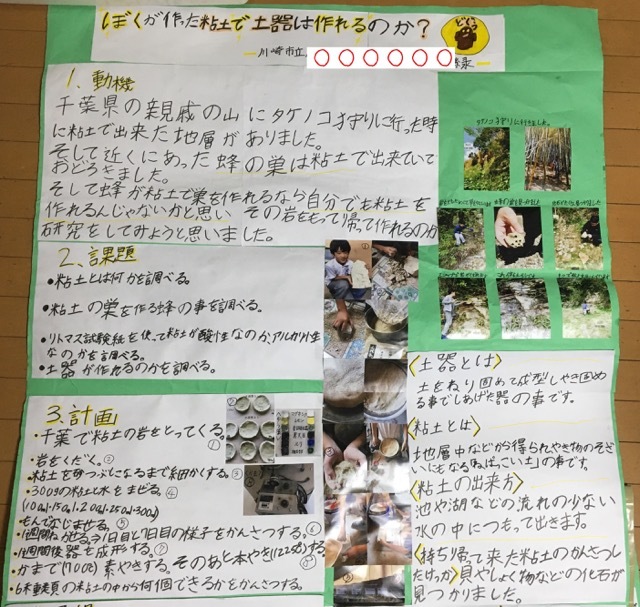 ぼくが作った粘土で土器は作れるのか?
川崎市立
どぐう
1、動機
千葉県の親戚の山にタケノコ狩りに行った時
に粘土で出来た地層がありました。
そして近くにあった蜂の巣は粘土で出来ていて
おどろきました。
そして蜂が粘土で巣を作れるなら自分でも粘土を
作れるんじゃないかと思い その岩をもって帰って作れるのか
研究をしてみようと思いました。
タケノコ狩りに行きました。
2、課題
•粘土とは何かを調べる。
•粘土の巣を作る蜂の事を調べる。
•リトマス試験紙を使って粘土が酸性なのか、アルカリ性
なのかを調べる。
•土器が作れるのかを調べる。
3、計画
•千葉で粘土の岩をとってくる。①
•岩をくだく。②
•粘土を砂つぶになるまで細かくする。③
•300gの粘土と水をまぜる。④
(100g1,150g1,200g1,250g1,300g)
もんでなじませる。⑤
•1週間ねかせる⇒1日目と7日目の様子をかんさつする。⑥
•1週間後器を成形する。⑦
かまで(710℃)素やきする。そのあと本やき(1225℃)する
•6種類の粘土の中から何個できるかをかんさつする。
〈土器とは〉
土をねり固めて成型しやき固め
る事でしあげた器の事です。
〈粘土とは〉
地層中などから得られやき物のそざ
いにもなる「ねばっこい土」の事です。
〈粘土の出来方〉
池や湖などの流れの少ない
水の中につもって出きます。
〈持ち帰って来た粘土のかんさつし
たけっか〉貝やしょく物などの化石が
見つかりました。